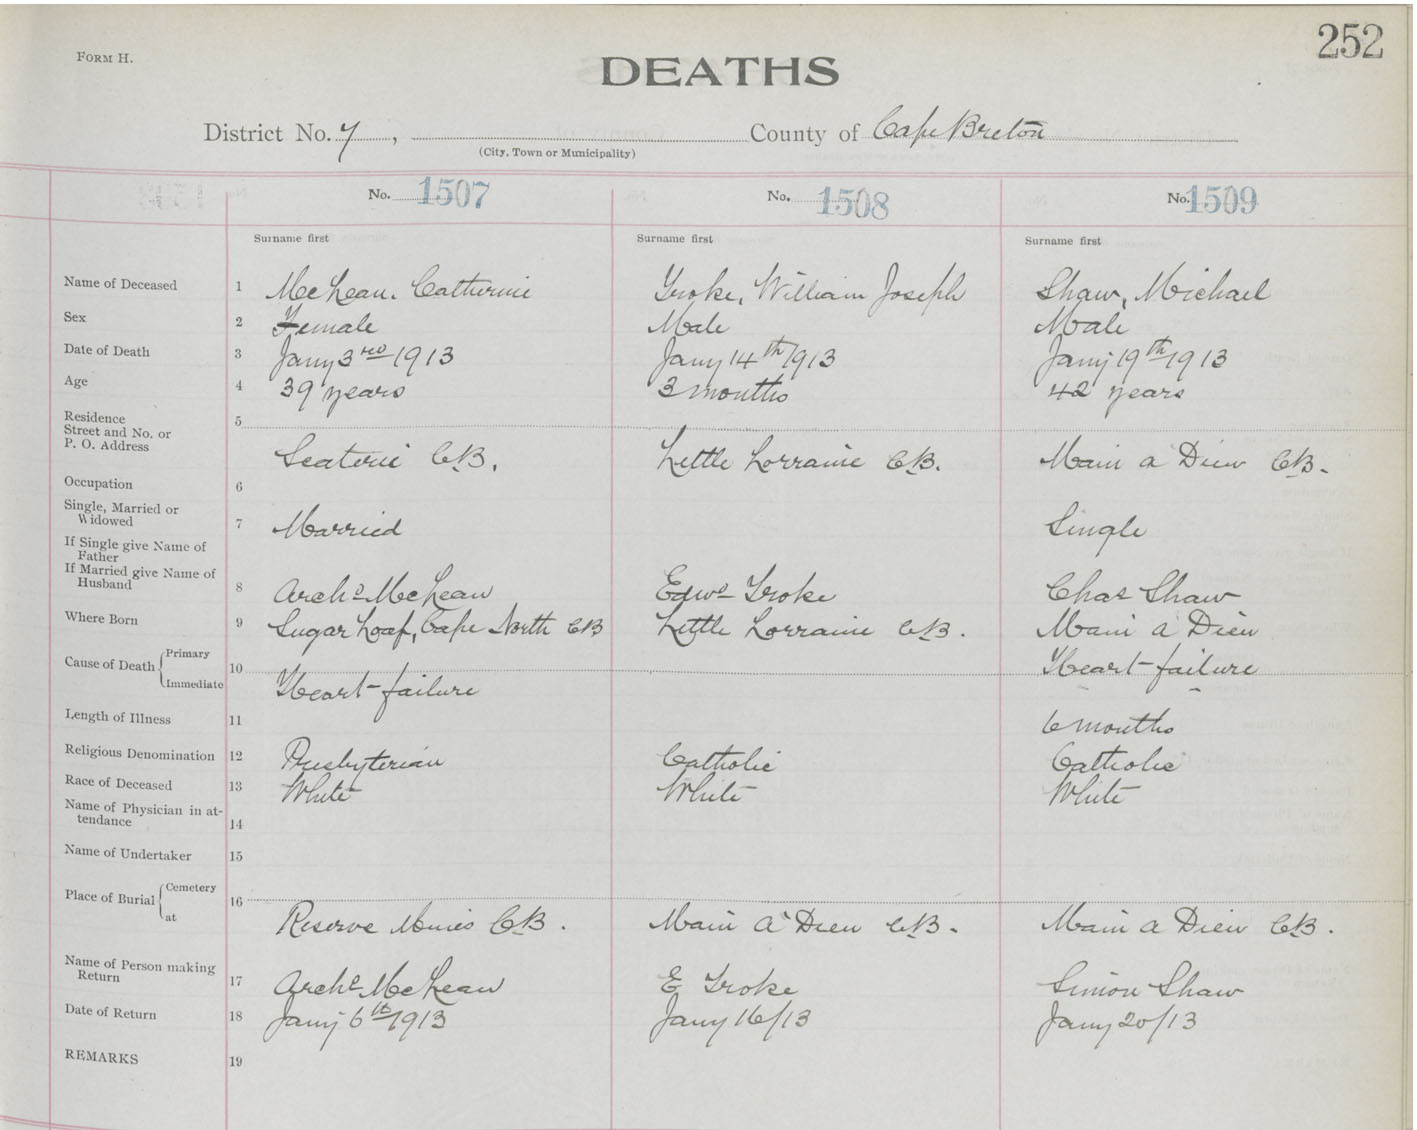 252
FORM H.
DEATHS
District No. 7, County of Cape Breton
(City, Town or Municipality)
No. 1507 No. 1508 No. 1509
Surname first Surname first Surname first
Name of Deceased 1 McLean. Catherine Groke, William Joseph Shaw, Michael
Sex 2 Female Male Male
Date of Death 3 Jany 3rd 1913 Jany 14th 1913 Jany 19th 1913
Age 4 39 years 3 months 42 years
Residence
Street and No. or 5
P. O. Address
Scaterie CB. Little Lorraine CB. Main a Dieu CB.
Occupation 6
Single, Married or
Widowed 7 Married Single
If Single give Name of
Father
If Married give Name of
Husband 8 Archd McLean Edwd Groke Chas Shaw
Where Born 9 Sugar Loaf, Cape North CB Little Lorraine CB. Main a Dieu
Cause of Death Primary 10 Heart failure
Immediate Heart-failure
Length of Illness 11 6 months
Religious Denomination 12 Presbyterian Catholic Catholic
Race of Deceased 13 White White White
Name of Physician in at-
tendance 14
Name of Undertaker 15
Place of Burial Cemetery 16
at Reserve Mines CB. Main a Dieu CB. Main a Dieu CB.
Name of Person making
Return 17 Archd McLean E Groke Simon Shaw
Date of Return 18 Jany 6th 1913 Jany 16/13 Jany 20/13
REMARKS 19